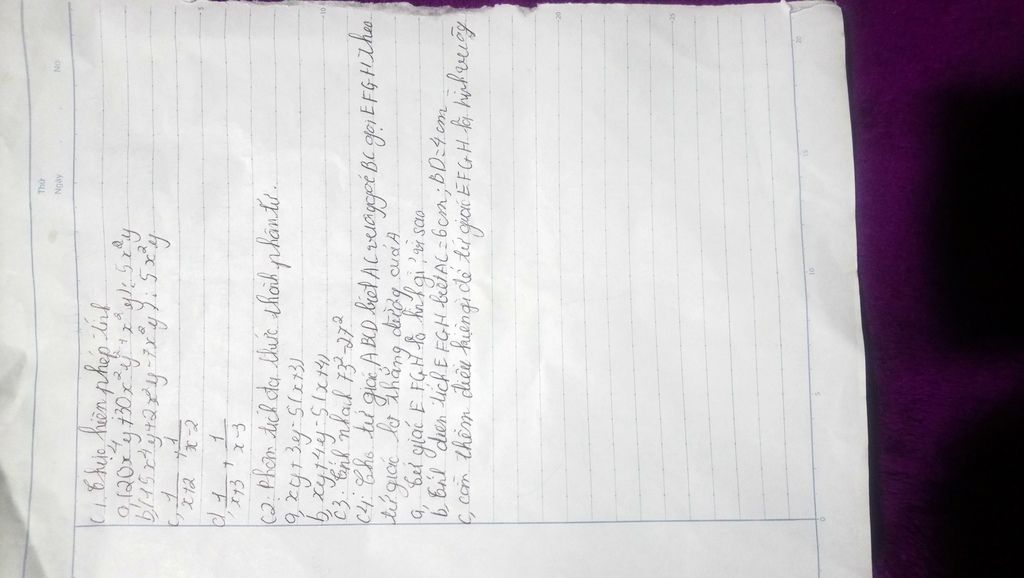 Thứ
Ngày
No
C1. Thực hiện phép tính
a, (20x⁴y + 30x²y² + x²y) : 5x²y
b, (15x⁴y + 2x²y - 7x²y) : 5x²y
c, 1/x+2 + 1/x-2
d, 1/x+3 + 1/x-3
C2: Phân tích đa thức thành phân tử.
a, xy + 3y - 5(x+3)
b, xy + 4y - 5(x+4)
C3: Tính nhanh 73² - 27²
C4: Cho tứ giác ABCD biết AC vuông góc BC gọi EFGH theo
tứ giác là thẳng đường của A
a, tứ giác EFGH là hình gì, vì sao
b. tính diện tích EFGH biết AC = 6cm; BD = 4cm
c, cần thêm điều kiện gì để tứ giác EFGH là hình vuông